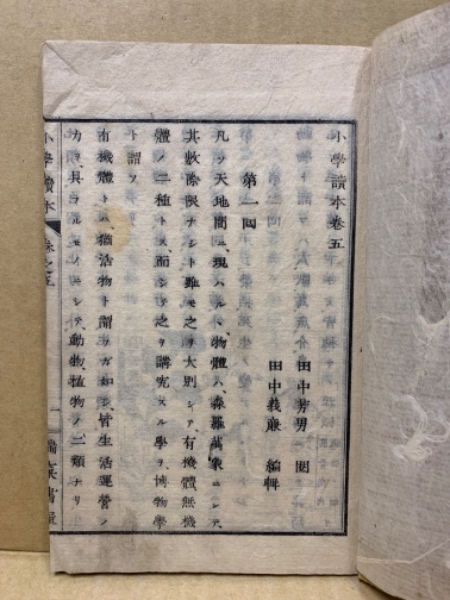 小學讀本卷五
田中芳男 閲
田中義廉 編輯
第一回
凡ソ天地間ニ、現ハルヽ物體ハ、森羅萬象ニシテ、
其數際限ナシト雖モ、之ヲ大別シテ、有機體無機
體ノ二種トス、而シテ之ヲ講究スル學ヲ、博物學
ト謂フ、
有機體トハ、猶活物ト謂フガ如シ、皆生活運營ノ
力ヲ、具ふルモノニシテ、動物、植物ノ二類ナリ、
小學讀本 卷之五 一